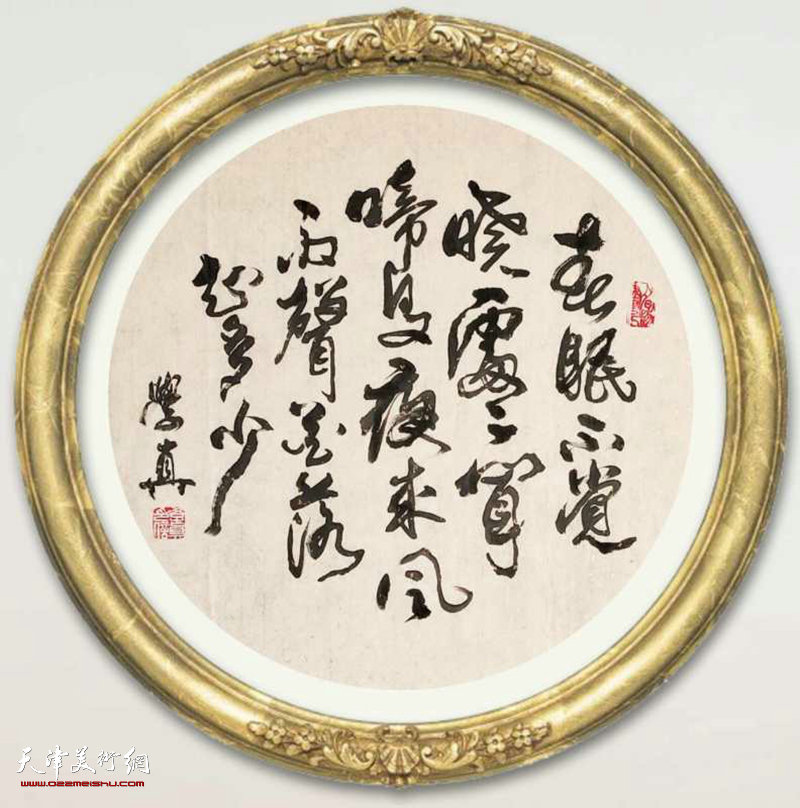 春眠不覺
曉處〻聞
啼鳥夜来風
雨聲花落
知多少
學真
天津美術網
www.022meishu.com